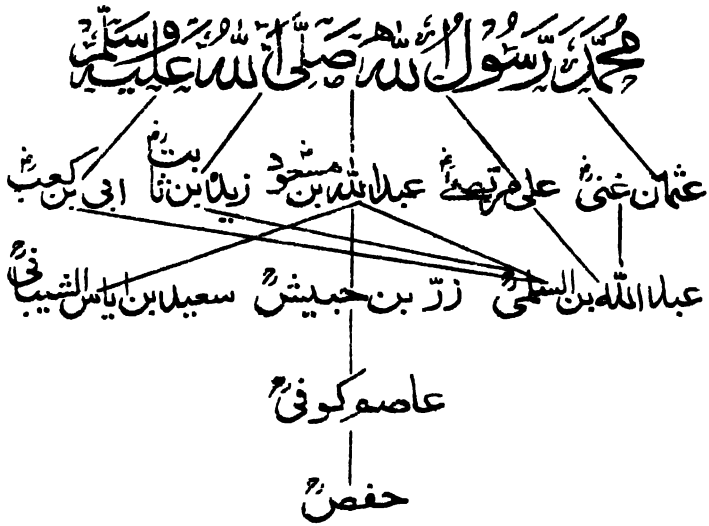 محمد رسول الله صلى الله عليه وسلم
عثمان غنیؓ علی مرتضےؓ عبدالله بن مسعودؓ زید بن ثابتؓ ابی بن کعبؓ
عبدالله بن السلمیؒ زرّ بن حبیشؒ سعید بن ایاس الشیبانیؒ
عاصم کوفیؒ
حفصؒ